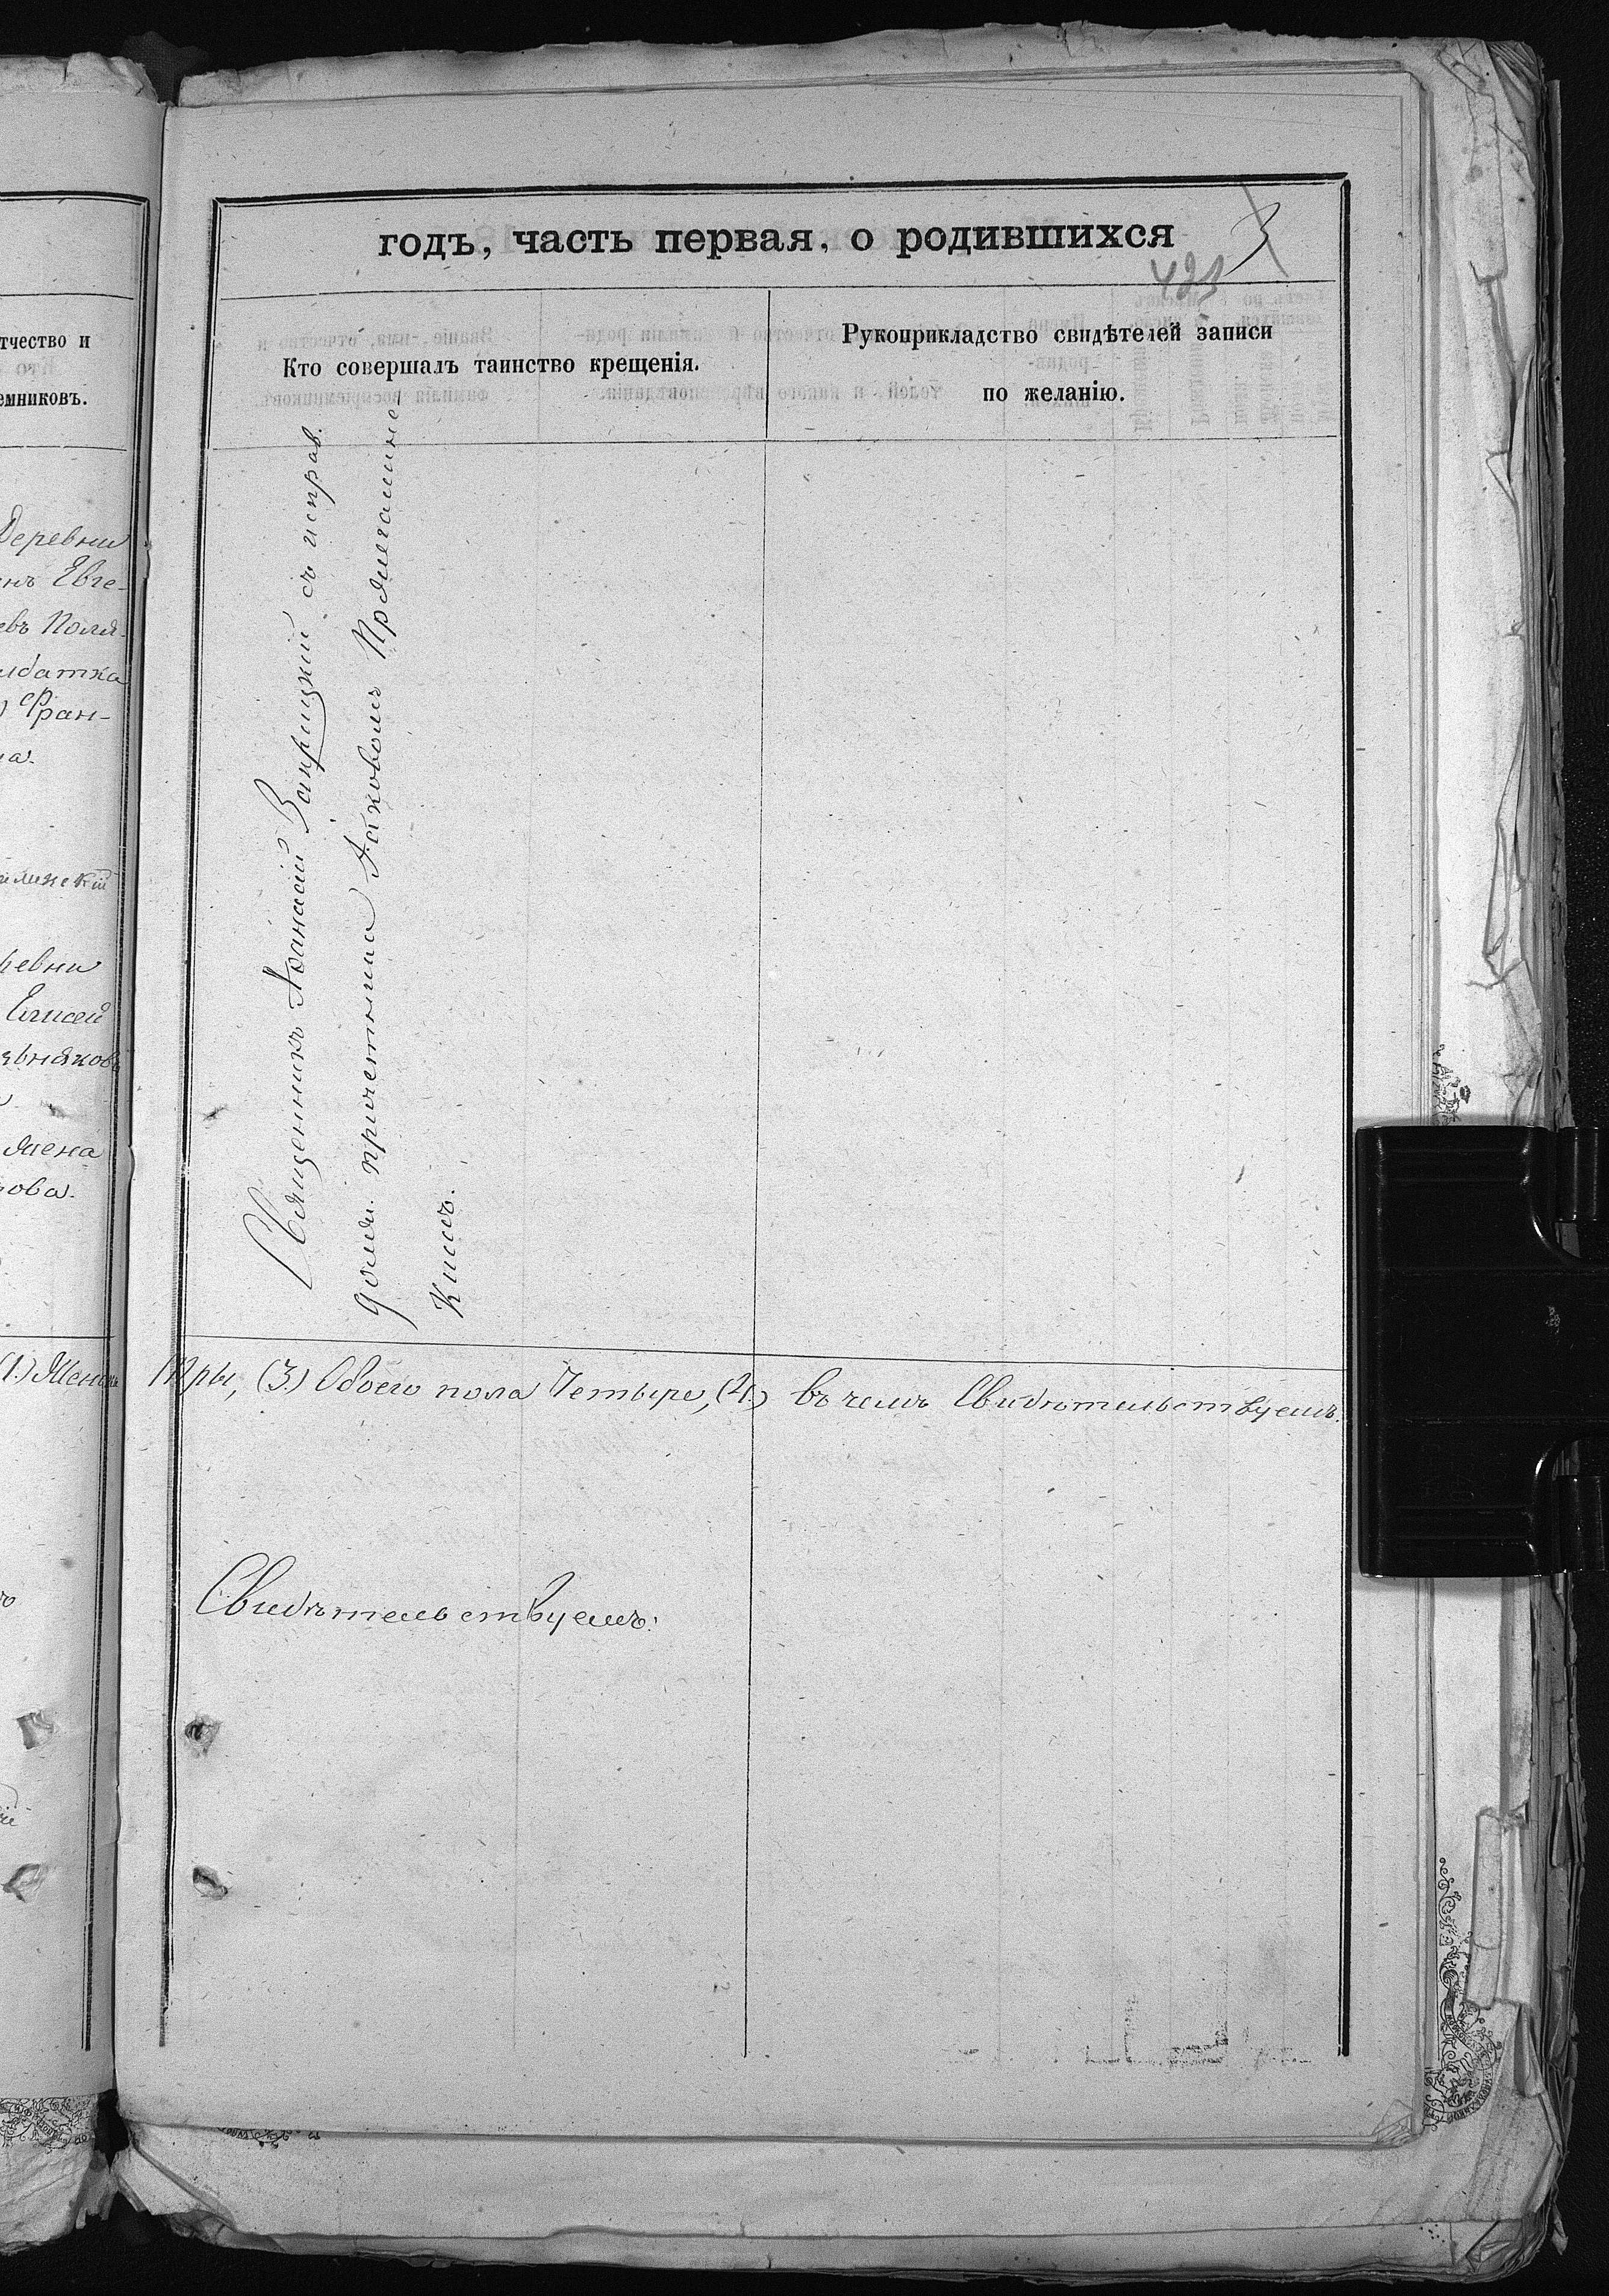 тчество и
емниковъ.
Деревни
нъ Евге-
евъ Поля-
лдатка
Фран-
на.
ревни
Елисей
жена
рова.
(1.) Женска
годъ, часть первая, о родившихся
3
423
Кто совершалъ таинство крещенія.
Рукоприкладство свидѣтелей записи
по желанію.
Священникъ Аѳанасій Закрицкій съ исправ.
долж. причетника Іаковомъ
Кисль.
Тры, (3.) Обоего пола Четыре, (4.) въ чемъ Свидѣтельствуемъ.
Свидѣтельствуемъ: